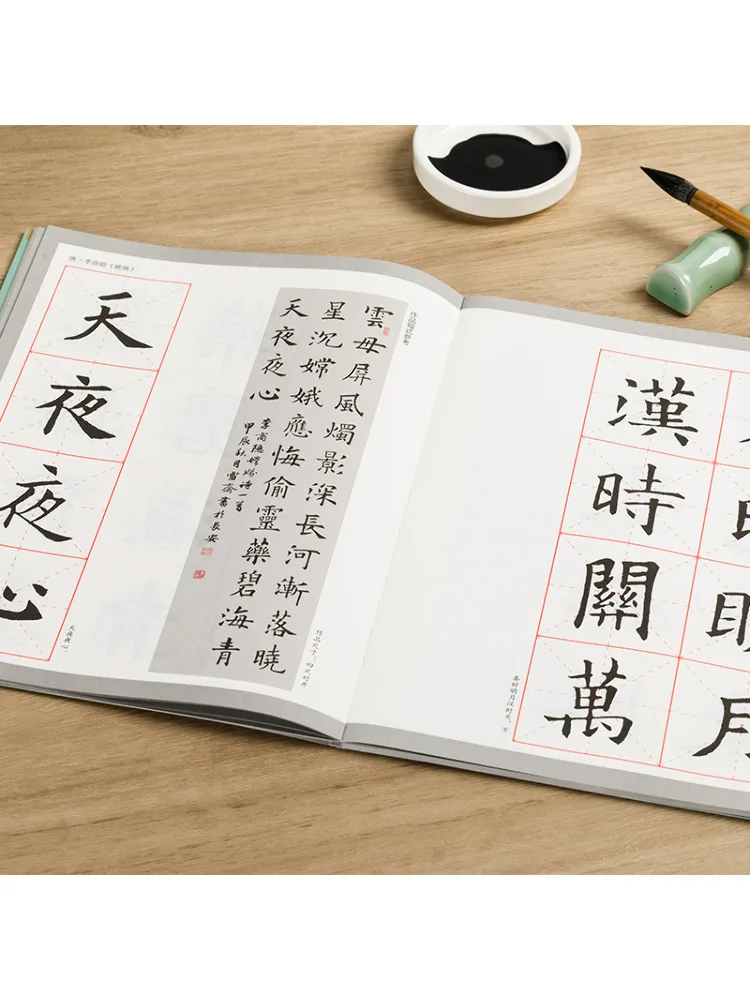 唐·李商隐《嫦娥》
天夜夜心
天夜夜心。
作品幅式参考
雲母屏風燭影深長河漸落曉
星沉嫦娥應悔偷靈藥碧海青
天夜夜心
李商隱嫦娥詩一首
甲辰秋月雪齋書於長安
作品尺寸：四尺对开
明月
漢時關萬
秦时明月汉时关，万